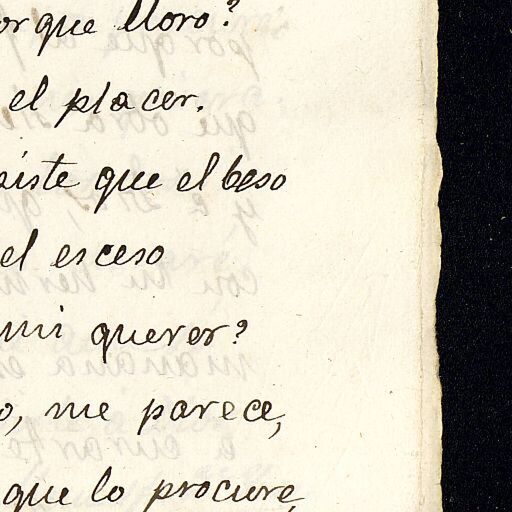 orque lloro?
el placer.
siste que el beso
el esceso
mi querer?
o, me parece,
que lo procure,